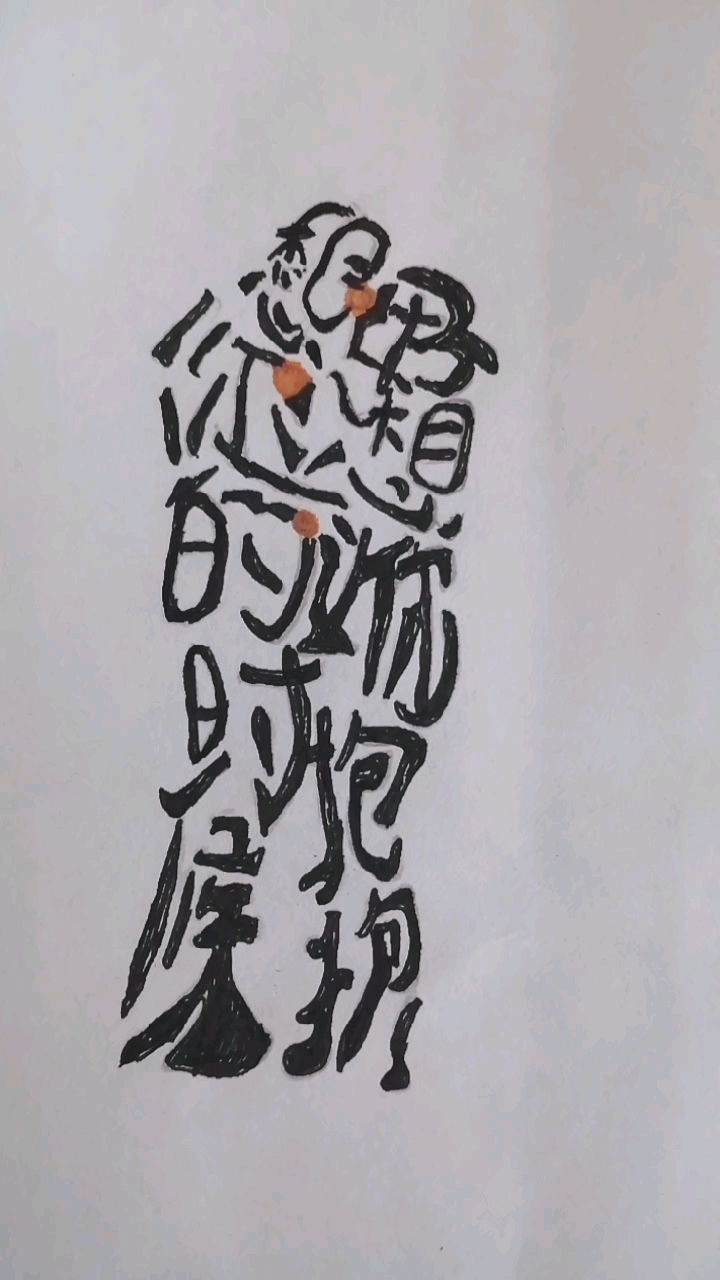 的时候
好想你抱抱！